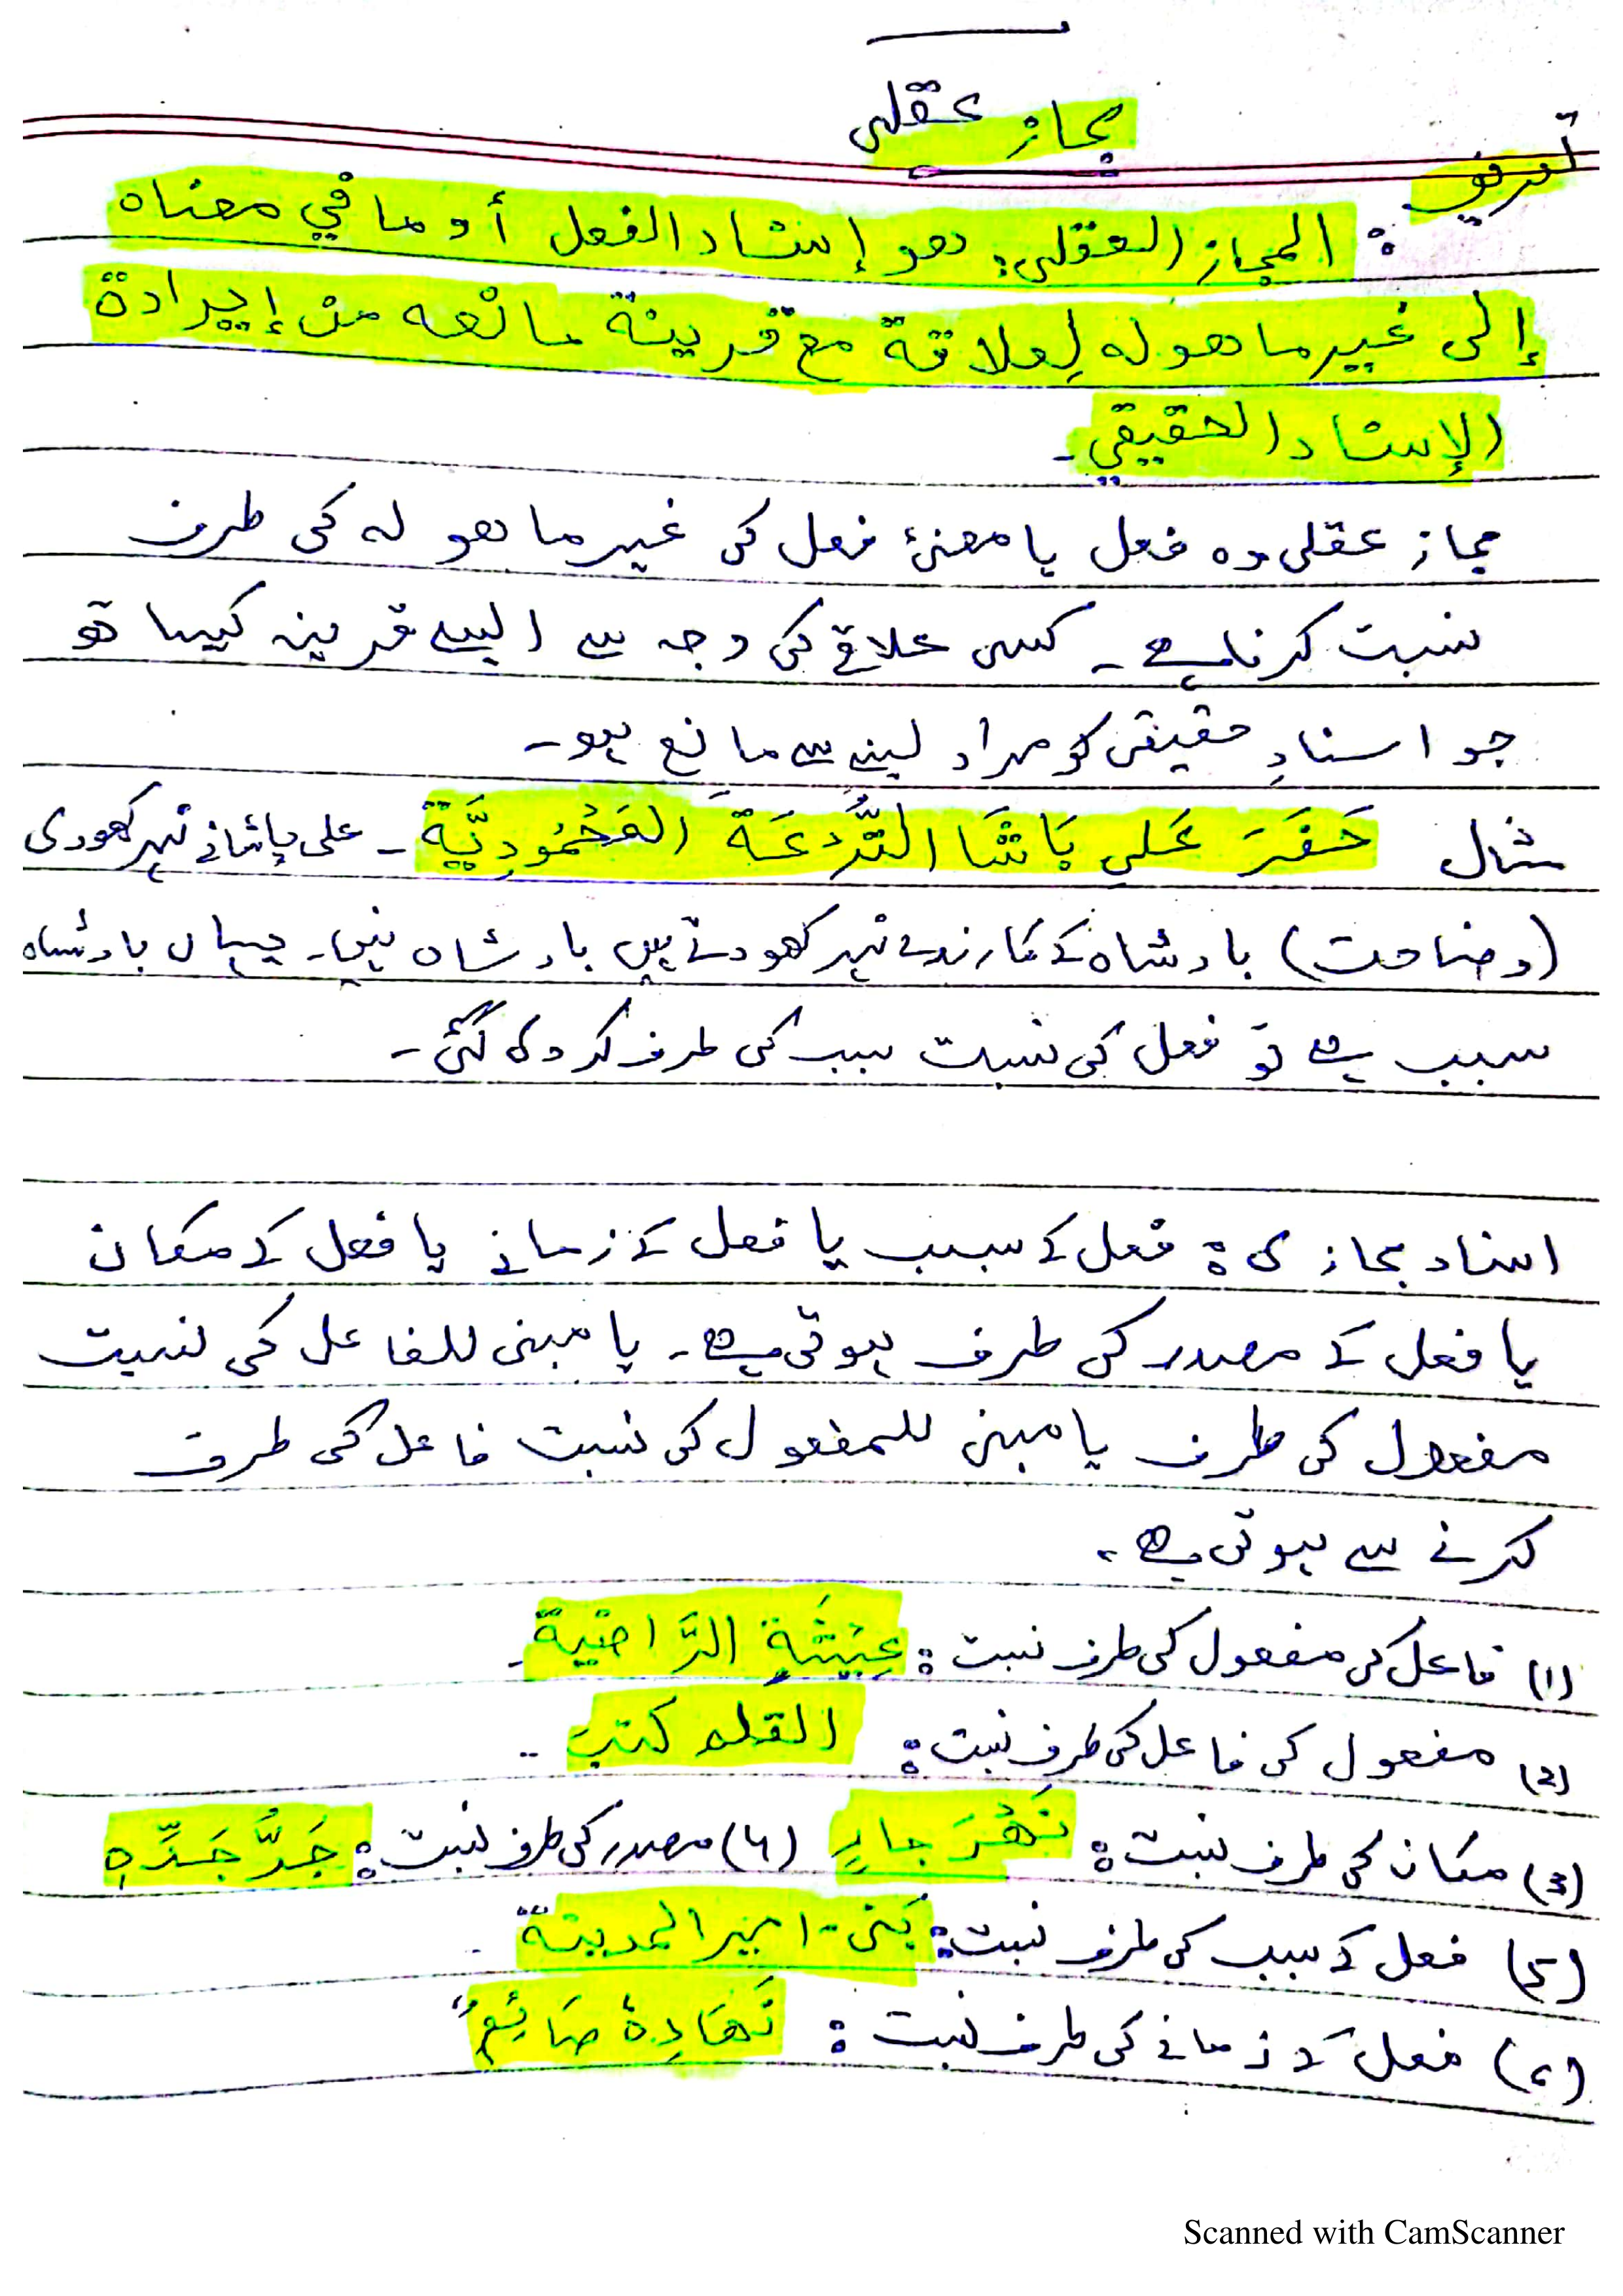 مجاز عقلی
تعریف : المجاز العقلی: هو إسناد الفعل أو ما في معناه
إلى غير ما هو له لِعلاقة مع قرينة مانعه من إيرادة
الإسناد الحقيقي۔
مجاز عقلی وہ فعل یا معنئ فعل کی غیر ما ھو لہ کی طرف
نسبت کرنا ہے ۔ کسی علاقے کی وجہ سے ایسے قرینہ کیساتھ
جو اسنادِ حقیقی کو مراد لینے سے مانع ہو۔
مثال حَفَرَ عَلي بَاشَا التُّرْعَةَ المَحْمُودِيَّة ۔ علی پاشا نے نہر کھودی
(وضاحت) بادشاہ کے کارندے نہر کھودتے ہیں بادشاہ نہیں۔ یہاں بادشاہ
سبب ہے تو فعل کی نسبت سبب کی طرف کر دی گئی ۔
اسناد مجازی : فعل کے سبب یا فعل کے زمانے یا فعل کے مکان
یا فعل کے مصدر کی طرف ہوتی ہے۔ یا مبنی للفاعل کی نسبت
مفعول کی طرف یا مبنی للمفعول کی نسبت فاعل کی طرف
کرنے سے ہوتی ہے ۔
(1) فاعل کی مفعول کی طرف نسبت : عِيْشَةٍ الرَّاضية ۔
(2) مفعول کی فاعل کی طرف نسبت : القلم كتب ۔
(3) مکان کی طرف نسبت : نَهْرَ جارٍ (۴) مصدر کی طرف نسبت : جَدَّ جَدِّهِ
(۵) فعل کے سبب کی طرف نسبت : بَنىٰ امير المدينة
(۶) فعل کے زمانے کی طرف نسبت : نَهَارِهُ صَائِمٌ
Scanned with CamScanner